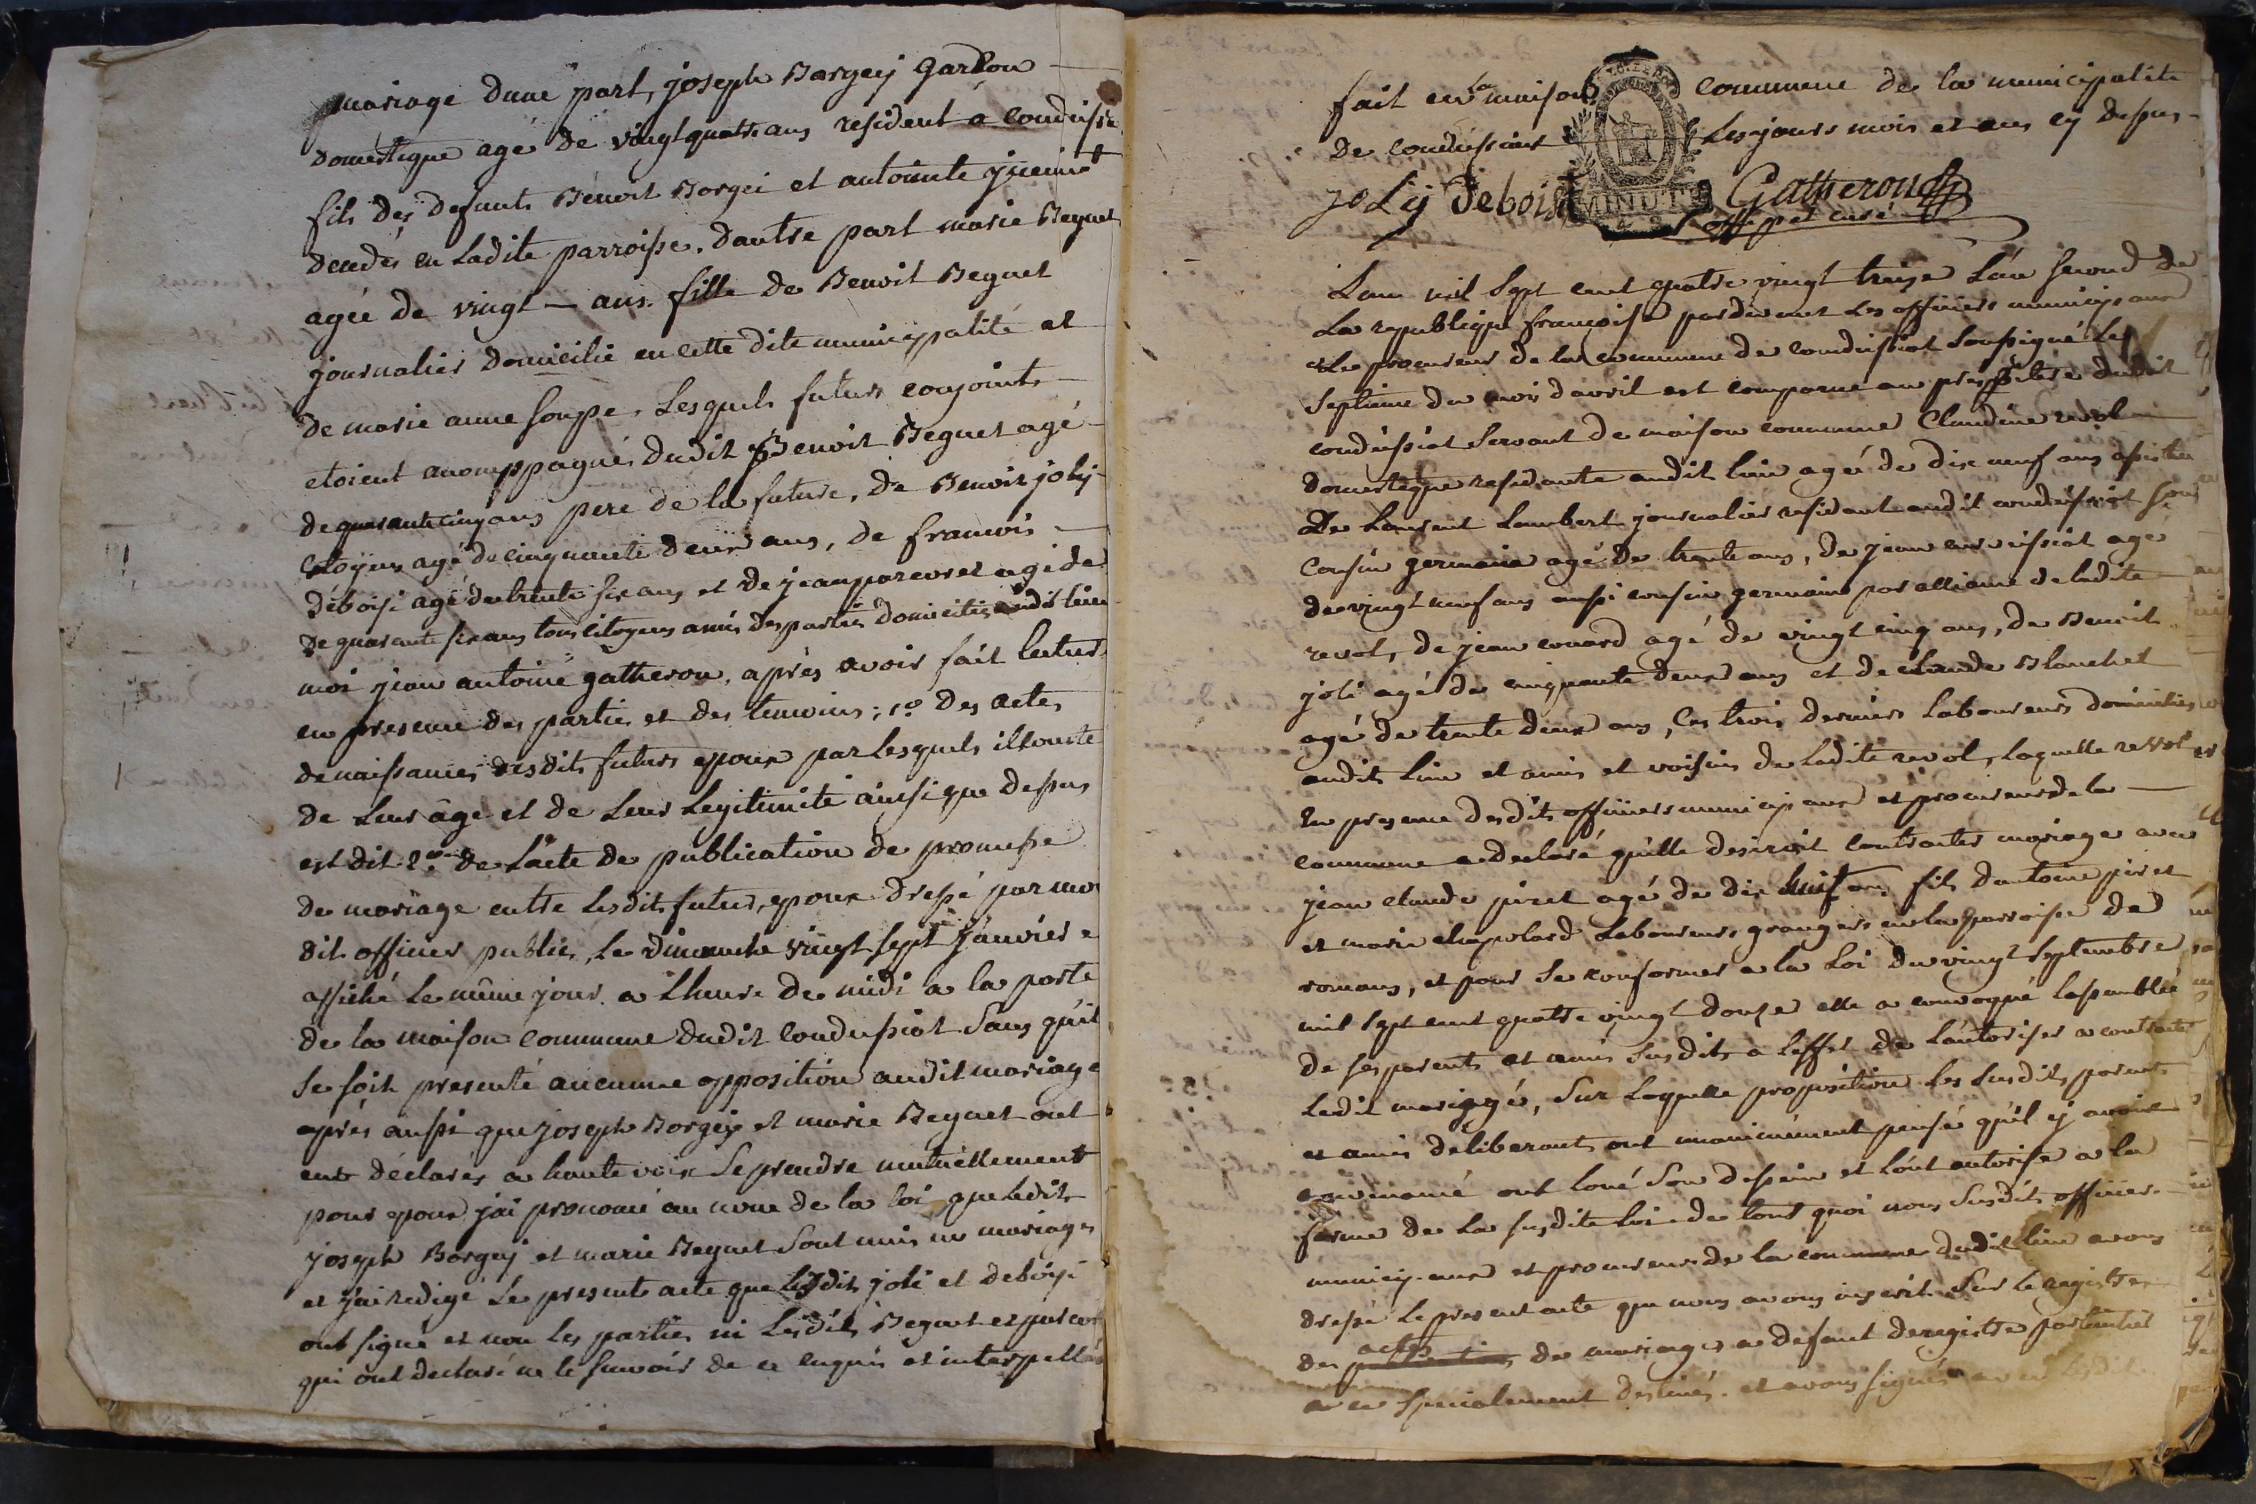 mariage dune part, joseph Borgey garçon
domestique agé de vingt quatre ans resident a condeissiat
fils des defunts Benoit Borgei et antointe
decedés en ladite parroisse. dautre part marie Beguet
agée de vingt — ans. fille de Benoit Beguet
journalier domicilié en cette dite municipalité et
de marie anne soupe. Lesquels futurs conjoints
etoient accomppagnés dudit Benoit Beguet agé
de quarante cinq ans pere de la future, de Benoit joly
citoyen agé de cinquante deux ans, de francois
déboisi agé de trente six ans et de jean parcoret agé de
de quarante six ans tous citoyens amis des parties domiciliés audit lieu
moi jean antoine gatheron, après avoir fait lecture
en presence des parties et des temoins; 1º des actes
de naissances desdits futurs epoux par lesquels il conste
de leur âge et de leur legitimité ainsi que dessus
est dit 2º de l'acte de publication de promesse
de mariage entre lesdits futurs epoux dressé par moi
dit officier public, le dimanche vingt sept janvier e
affiché le même jour a lheure de midi a la porte
de la maison commune dudit condeissiat sans qu'il
se soit presenté aucunne opposition audit mariage
après aussi que joseph Borgey et marie Beguet ont
eut déclarés a haute voix se prendre mutuellement
pour epoux j'ai prononcé au nom de la loi que ledit
joseph Borgey et marie Beguet sont unis en mariage
et j'ai redigé le present acte que lesdits joli et deboisi
ont signé et non les parties ni lesdits Beguet et parcoret
qui ont declaré ne le scavoir de ce enquis et interpellés
fait en la maison commune de la municipalité
de condeissiat les jours mois et an cy dessus
joly Debois MINUTE Gatheron
off. p. et curé
Lan mil sept cent quatre vingt treize l'an second de
la republique françoise pardevant les officiers municipaux
et le procureur de la commune de condeissiat soussigné le
septieme du mois d'avril est comparue au presbitere dudit
condeissiat servant de maison commune Claudine revol
domestique residante audit lieu agée de dix neuf ans assistée
de Laurent Lambert journalier residant audit condeissiat son
cousin germain agé de trente ans, de jean agé
de vingt neuf ans aussi cousin germain par alliance de ladite
revol, de jean convard agé de vingt cinq ans, de Benoit
joli agé de cinquante deux ans et de claude Blanchet
agé de trente deux ans, les trois derniers laboureurs domiciliés
audit lieu et amis et voisins de ladite revol, laquelle revol
en presence desdits officiers municipaux et procureur de la
commune a declaré qu'elle desiroit contracter mariage avec
jean claude piret agé de dix huit ans fils d'antoine piret
et marie chapolard laboureurs grangers en la parroise de
romans, et pour se conformer a la loi du vingt septembre
mil sept cent quatre vingt douze elle a convoqué l'assemblée
de ses parents et amis susdits a leffet de l'autoriser a contracter
ledit mariage, sur laquelle proposition les susdits parents
et amis deliberants ont unanimement pensé qu'il y avoit
convenance ont loué son dessein et l'ont autorisé a la
forme de la susdite loi de tout quoi nous susdits officiers
municipaux et procureur de la commune dudit lieu avons
dressé le present acte que nous avons inscrit sur le registre
des actes de mariages a defaut de registre particulier
a ce specialement destinés. et avons signés avec lesdits